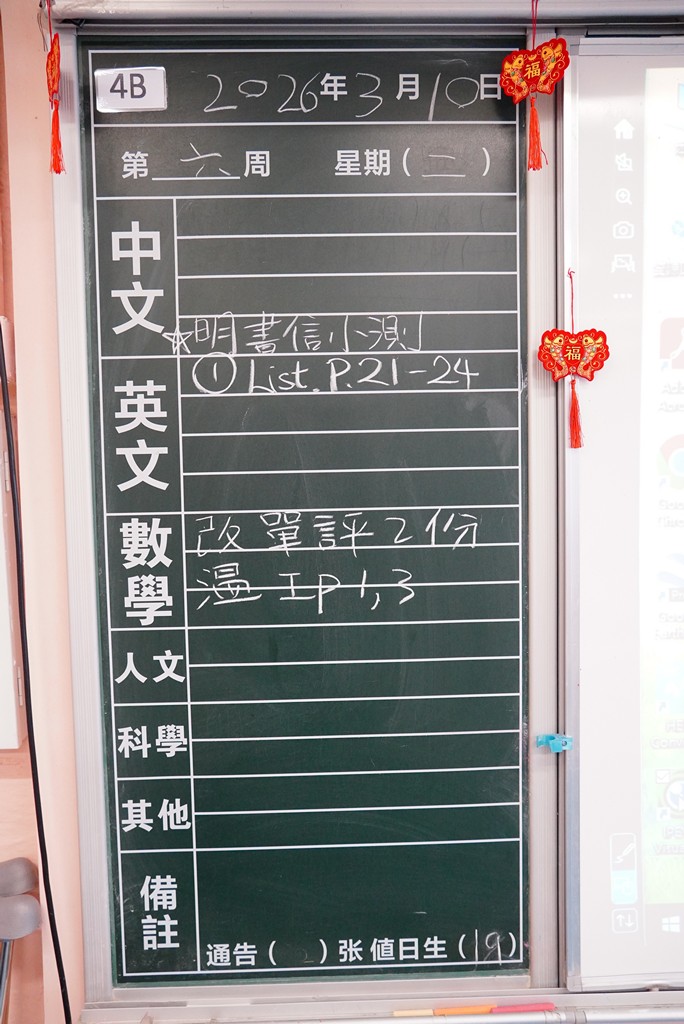 4B 2026年3月10日
第六周 星期(二)
中文
☆明書信小測
英文
① List. P.21-24
數學
改單評2份
溫工P1,3
人文
科學
其他
備註
通告( )张 值日生(19)
福
福